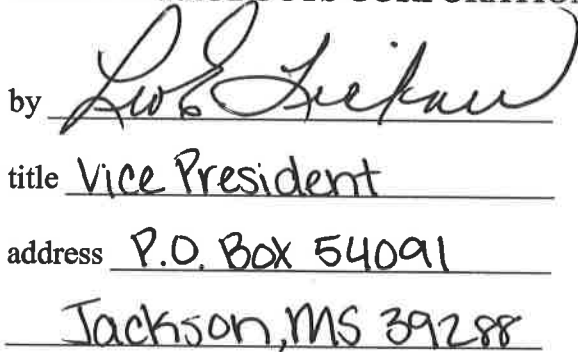 by
title Vice President
address P.O. Box 54091
Jackson, MS 39288